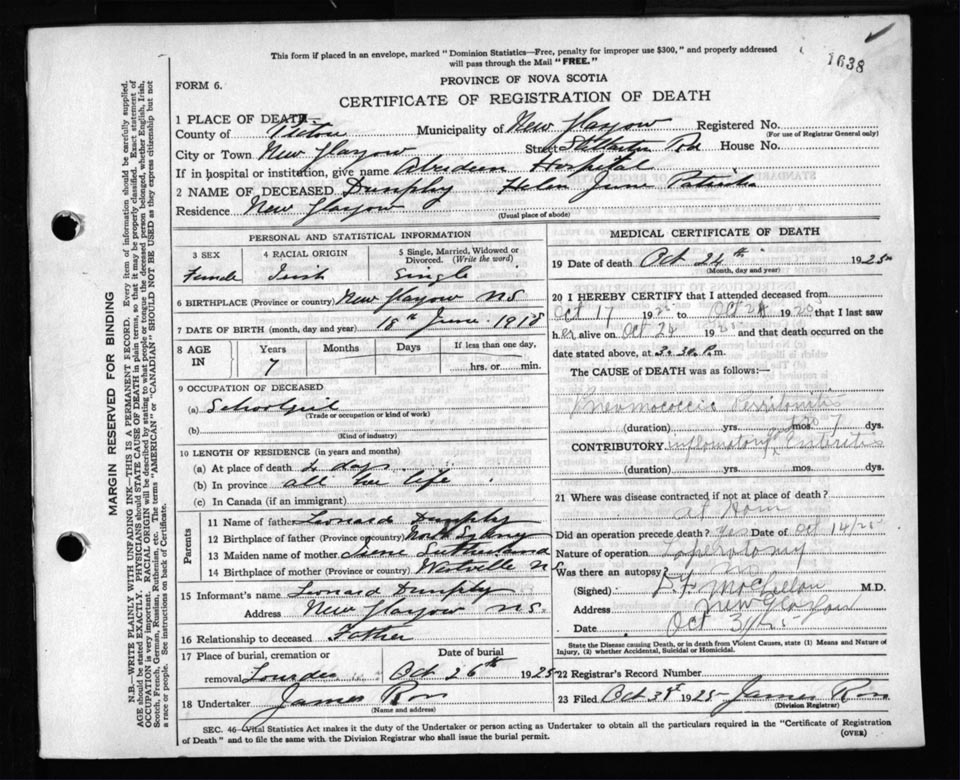 This form if placed in an envelope, marked "Dominion Statistics—Free, penalty for improper use $300," and properly addressed
will pass through the Mail "FREE."
1638
FORM 6.
PROVINCE OF NOVA SCOTIA
CERTIFICATE OF REGISTRATION OF DEATH
1 PLACE OF DEATH—
County of Pictou Municipality of New Glasgow Registered No.
(For use of Registrar General only)
City or Town New Glasgow Street House No.
If in hospital or institution, give name Aberdeen Hospital
2 NAME OF DECEASED Dunphy Helen June Patricia
Residence New Glasgow
(Usual place of abode)
PERSONAL AND STATISTICAL INFORMATION
3 SEX 4 RACIAL ORIGIN 5 Single, Married, Widowed or
Divorced. (Write the word)
Female Irish Single
6 BIRTHPLACE (Province or country) New Glasgow NS
7 DATE OF BIRTH (month, day and year) 18th June 1918
8 AGE IN Years Months Days If less than one day,
7 hrs. or min.
9 OCCUPATION OF DECEASED
(a) Schoolgirl
(Trade or occupation or kind of work)
(b)
(Kind of industry)
10 LENGTH OF RESIDENCE (in years and months)
(a) At place of death days
(b) In province all her life
(c) In Canada (if an immigrant)
Parents
11 Name of father Leonard Dunphy
12 Birthplace of father (Province or country) North Sydney
13 Maiden name of mother Irene Sutherland
14 Birthplace of mother (Province or country) Westville NS
15 Informant's name Leonard Dunphy
Address New Glasgow NS.
16 Relationship to deceased Father
17 Place of burial, cremation or Date of burial
removal Lourdes Oct 26th 1925
18 Undertaker James Ross
(Name and address)
MEDICAL CERTIFICATE OF DEATH
19 Date of death Oct 24th 1925
(Month, day and year)
20 I HEREBY CERTIFY that I attended deceased from
Oct 17 19 to Oct 19 that I last saw
her alive on Oct 19 and that death occurred on
date stated above, at 3.30 p.m.
The CAUSE of DEATH was as follows:—
Pneumococcic Perritonitis
(duration) yrs. mos. 7 dys.
CONTRIBUTORY inflamatory Enteritis
(duration) yrs. mos. dys.
21 Where was disease contracted if not at place of death?
at Home
Did an operation precede death? Yes Date of Oct 14/25
Nature of operation Laperotomy
Was there an autopsy? No
(Signed) McLellan M.D.
Address New Glasgow
Date Oct 31/25
State the Disease causing Death, or in death from Violent Causes, state (1) Means and Nature of
Injury, (2) whether Accidental, Suicidal or Homicidal.
22 Registrar's Record Number
23 Filed Oct 1925 James Ross
(Division Registrar)
SEC. 46—Vital Statistics Act makes it the duty of the Undertaker or person acting as Undertaker to obtain all the particulars required in the "Certificate of Registration
of Death" and to file the same with the Division Registrar who shall issue the burial permit.
(OVER)
MARGIN RESERVED FOR BINDING
N.B.—WRITE PLAINLY WITH UNFADING INK—THIS IS A PERMANENT RECORD. Every item of information should be carefully supplied.
AGE should be stated EXACTLY. PHYSICIANS should STATE CAUSE OF DEATH in plain terms, so that it may be properly classified. Exact statement of
OCCUPATION is very important. RACIAL ORIGIN will be described by stating to what people or tongue the deceased person belonged, whether English, Irish,
Scotch, French, German, Russian, Ruthenian, etc. The terms "AMERICAN" or "CANADIAN" SHOULD NOT BE USED as they express citizenship but not
a race or people. See instructions on back of Certificate.